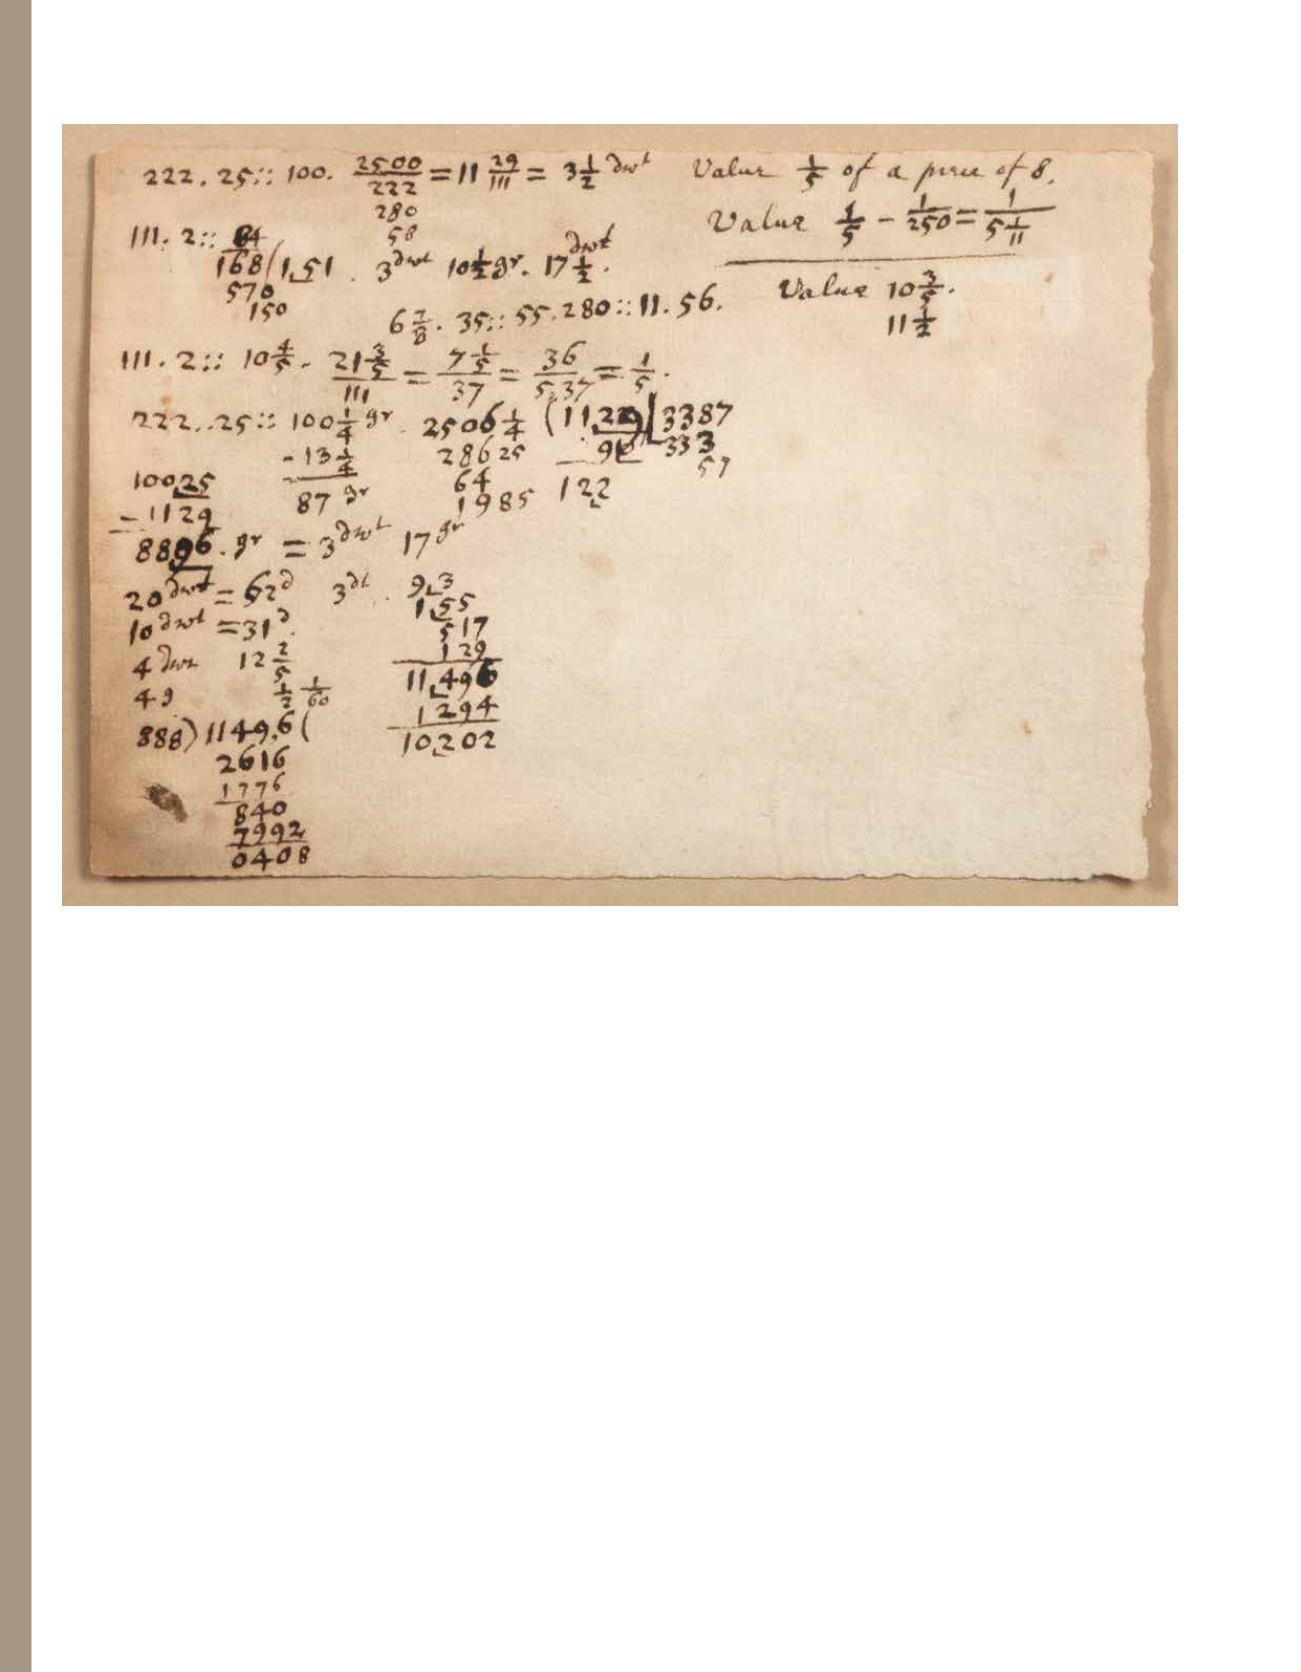 222 . 25 :: 100 . 2500/222 = 11 29/111 = 3 1/2 dwt
280
58
111 . 2 :: 84
168 ( 1,51 . 3 dwt 10 1/2 gr . 17 1/2 dwt .
570
150
6 7/8 . 35 :: 55 . 280 :: 11 . 56 .
111 . 2 :: 10 4/5 . 21 3/5 / 111 = 7 1/5 / 37 = 36 / 5,37 = 1/5 .
222 . . 25 :: 100 1/4 gr . 2506 1/4 ( 11,29 | 3387
- 13 1/4 28625 90 333
57
10025 87 gr 64 122
- 1129 1985
8896 . gr = 3 dwt 17 gr
20 dwt = 62 d 3 dt . 9,3
10 dwt = 31 d . 1,55
517
4 dwt 12 2/5 129
4 g 1/2 1/60 11,496
1294
888 ) 1149,6 ( 10,202
2616
1776
840
7992
0408
Value 1/5 of a piece of 8 .
Value 1/5 - 1/250 = 1 / 5 1/11
Value 10 3/5 .
11 1/2